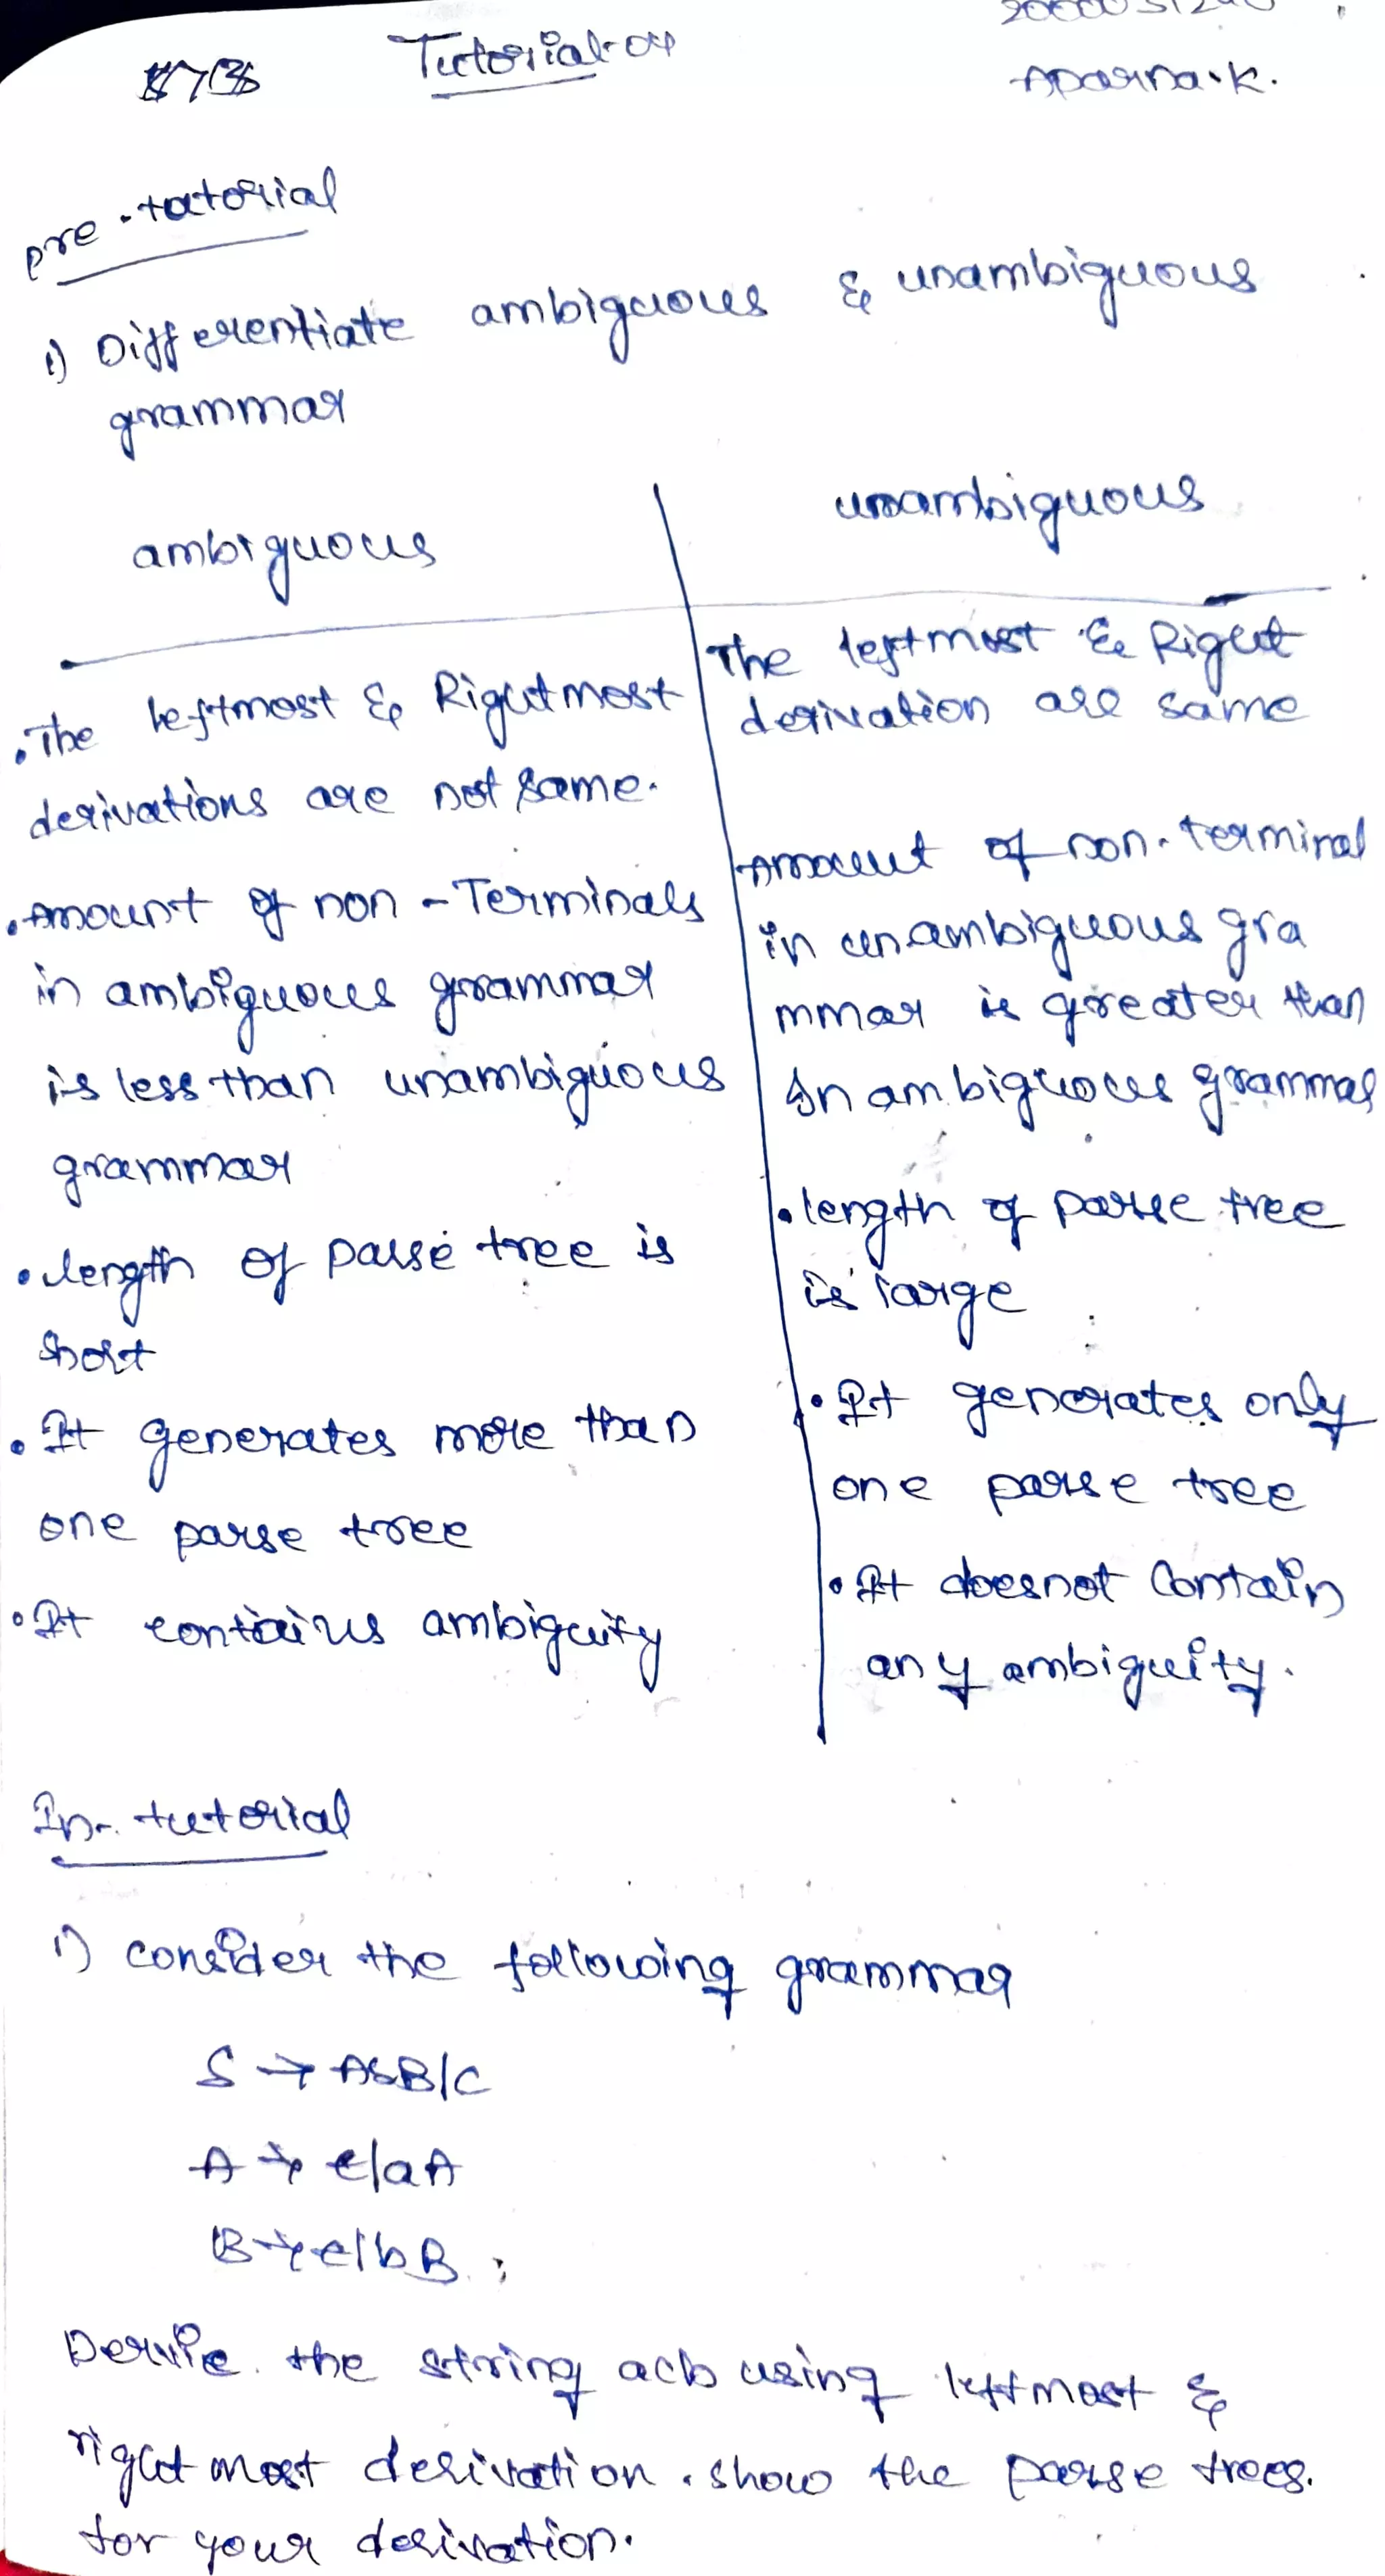 Tutorial-04
Aparna.K.
pre-tutorial
1) Differentiate ambiguous & unambiguous
grammar
ambiguous
unambiguous
.The leftmost & Rigutmost
derivations are not same.
.Amount of non-Terminals
in ambiguous grammar
is less than unambiguous
grammar
.length of parse tree is
short
.It generates more than
one parse tree
.It contains ambiguity
The leftmost & Rigut
derivation are same
Amount of non-terminal
in unambiguous gra
mmar is greater than
In ambiguous grammar
.length of parse tree
is large
.It generates only
one parse tree
.It doesnot contain
any ambiguity.
In-tutorial
1) consider the following grammar
S → ASB/C
A → e/aA
B → e/bB
Dervie the string acb using leftmost &
rigutmost derivation. show the parse trees.
for your derivation.